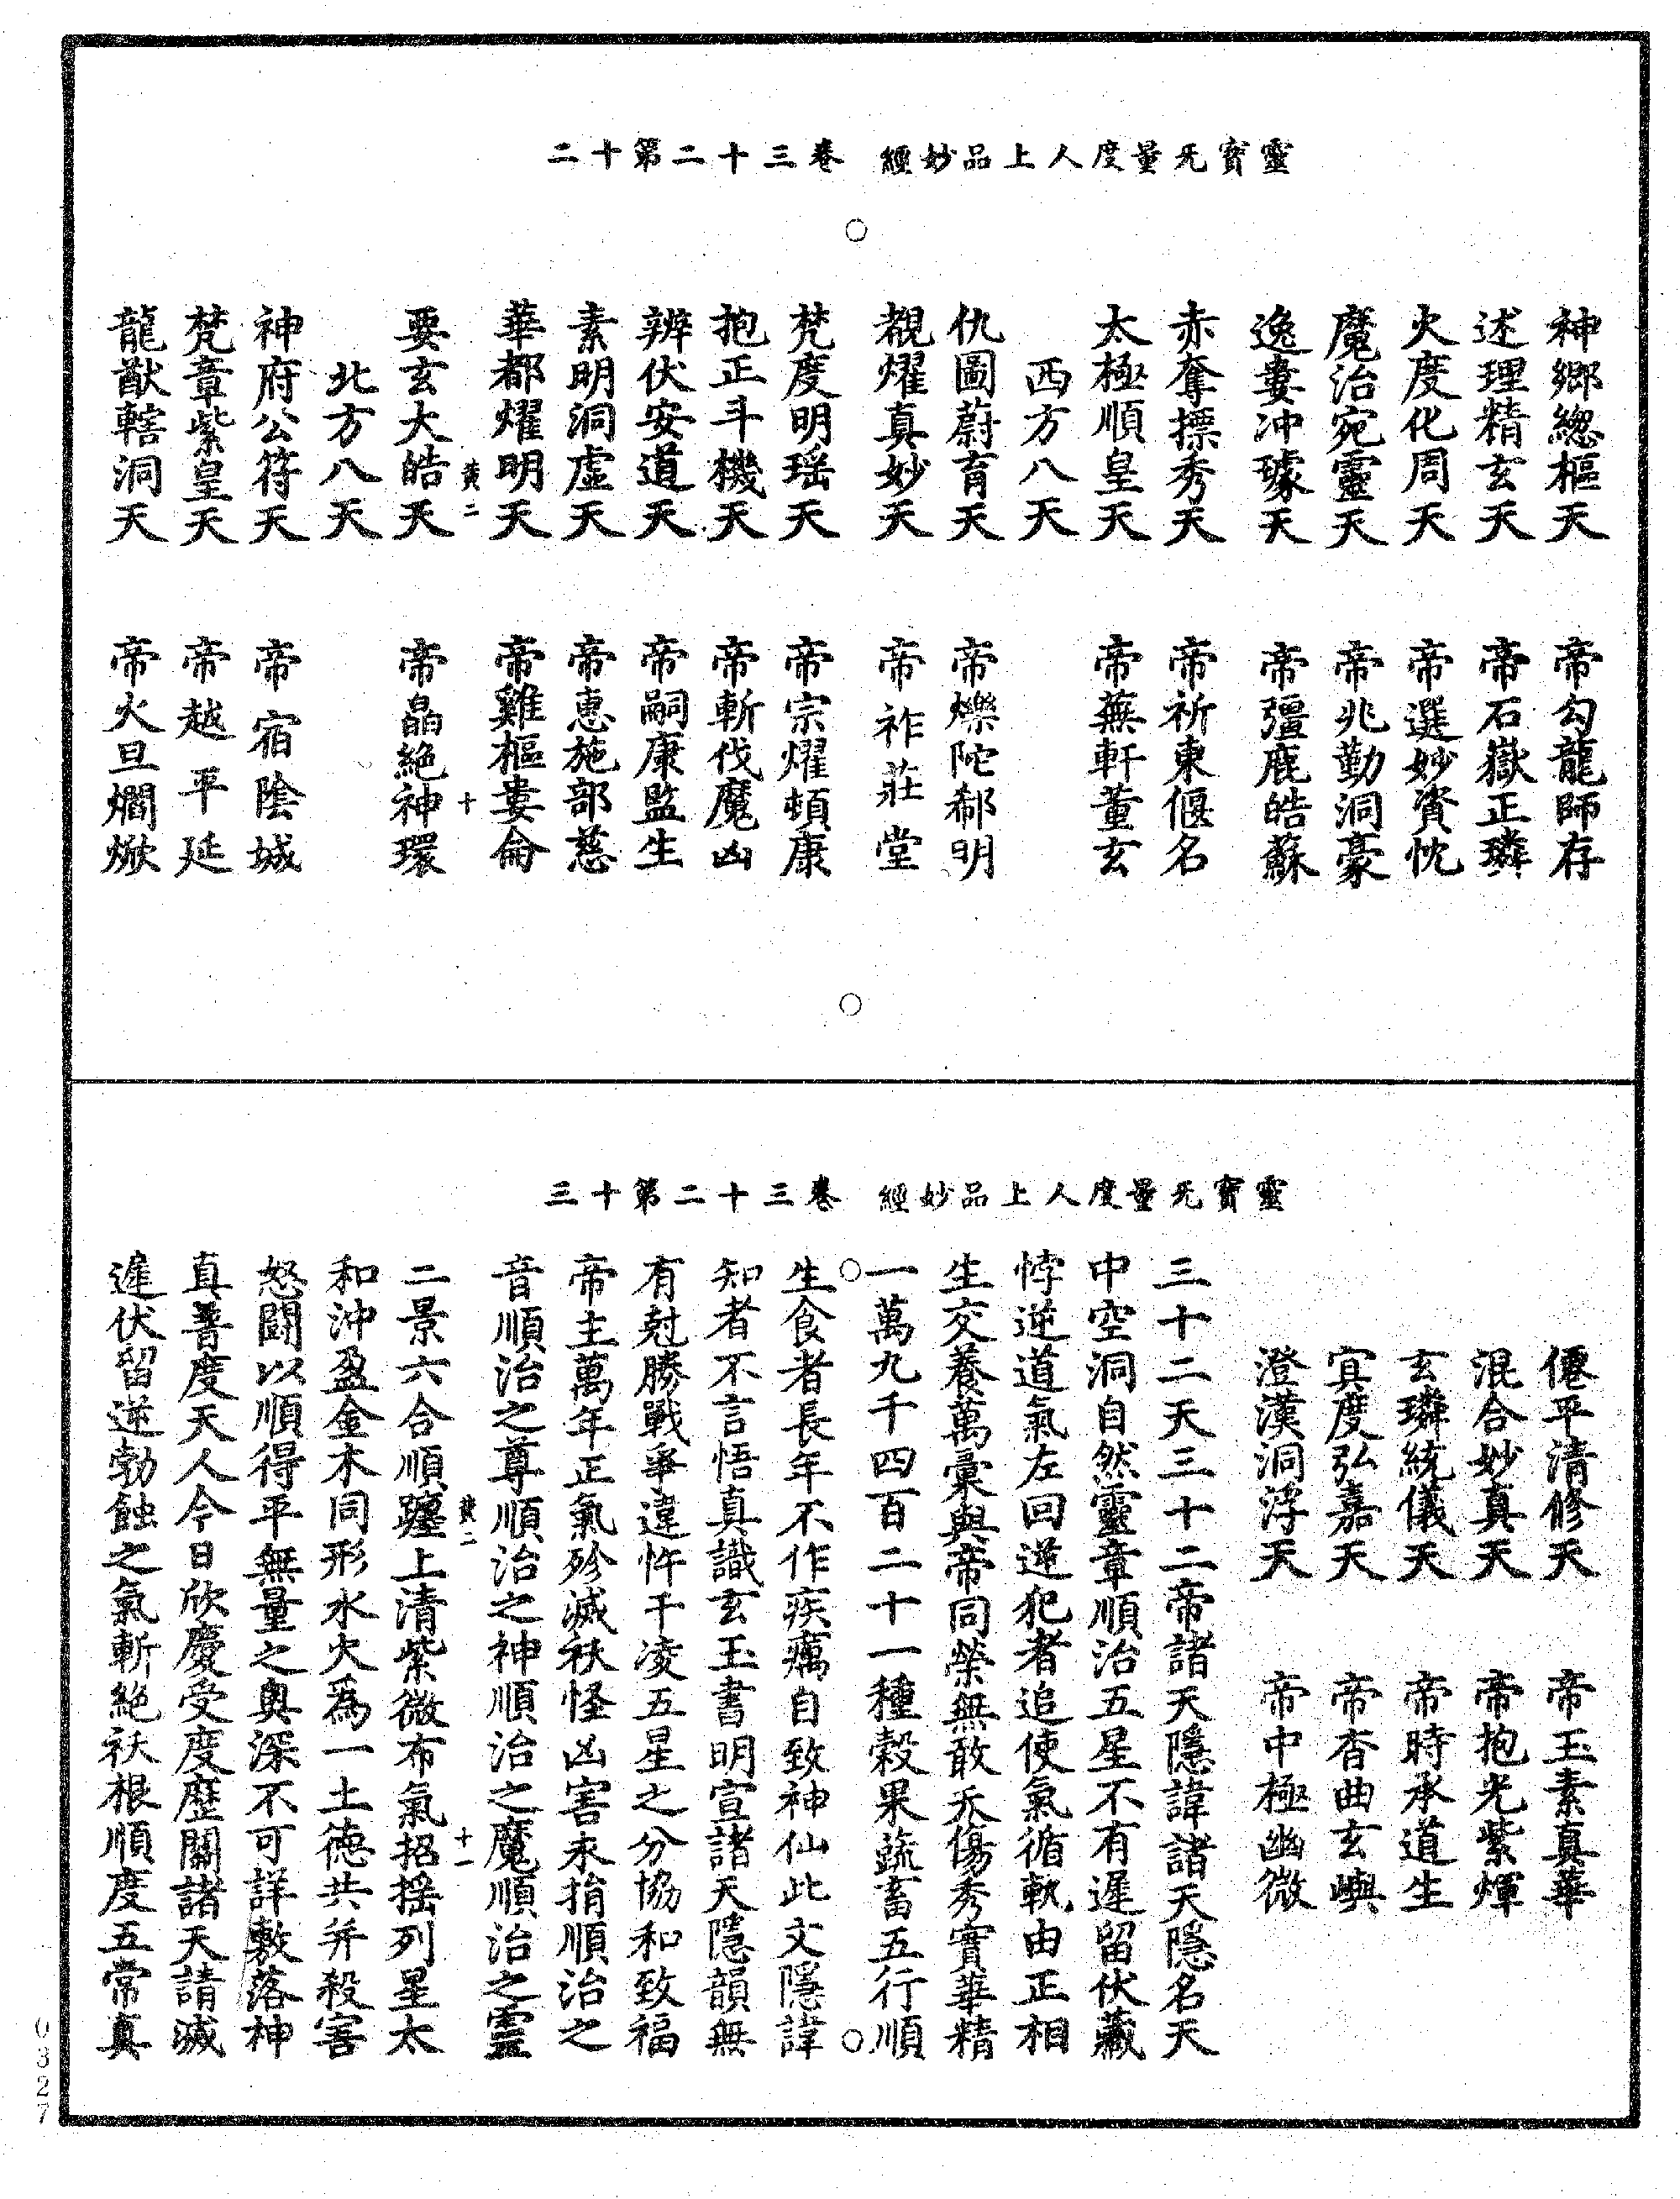 靈寶无量度人上品妙經 卷三十二第十二
神鄉緫樞天 帝勾龍師存
述理精玄天 帝石嶽正璘
火度化周天 帝選妙資忱
魔治宛靈天 帝兆勤洞豪
逸婁冲璩天 帝彊鹿皓蘇
赤奪摽秀天 帝祈東偃名
太極順皇天 帝蕪軒董玄
西方八天
仇圖蔚育天 帝爍陀郗明
覩燿真妙天 帝祚莊堂
梵度明瑶天 帝宗燿頓康
抱正斗機天 帝斬伐魔凶
辨伏安道天 帝嗣康監生
素明洞虛天 帝惠施部慈
華都燿明天 帝雞樞婁侖
黄二 十
要玄大皓天 帝晶絶神環
北方八天
神府公符天 帝宿陰城
梵章紫皇天 帝越平延
龍猷轄洞天 帝火旦爓焮
靈寶无量度人上品妙經 卷三十二第十三
僊平清修天 帝玉素真華
混合妙真天 帝抱光紫煇
玄璘統儀天 帝時承道生
寘度弘嘉天 帝杳曲玄嶼
澄漢洞浮天 帝中極幽微
三十二天三十二帝諸天隱諱諸天隱名天
中空洞自然靈章順治五星不有遲留伏藏
悖逆道氣左回逆犯者追使氣循軌由正相
生交養萬彙與帝同榮無敢夭傷秀實華精
一萬九千四百二十一種穀果蔬畜五行順
生食者長年不作疾癘自致神仙此文隱諱
知者不言悟真識玄玉書明宣諸天隱韻無
有尅勝戰爭違忤干凌五星之分協和致福
帝主萬年正氣殄滅袄怪凶害永捐順治之
音順治之尊順治之神順治之魔順治之靈
黄二 十一
二景六合順躔上清紫微布氣招摇列星太
和沖盈金木同形水火爲一土德共并殺害
怒鬪以順得平無量之奥深不可詳敷落神
真普度天人今日欣慶受度歷關諸天請滅
遲伏留逆勃蝕之氣斬絶袄根順度五常真
0327